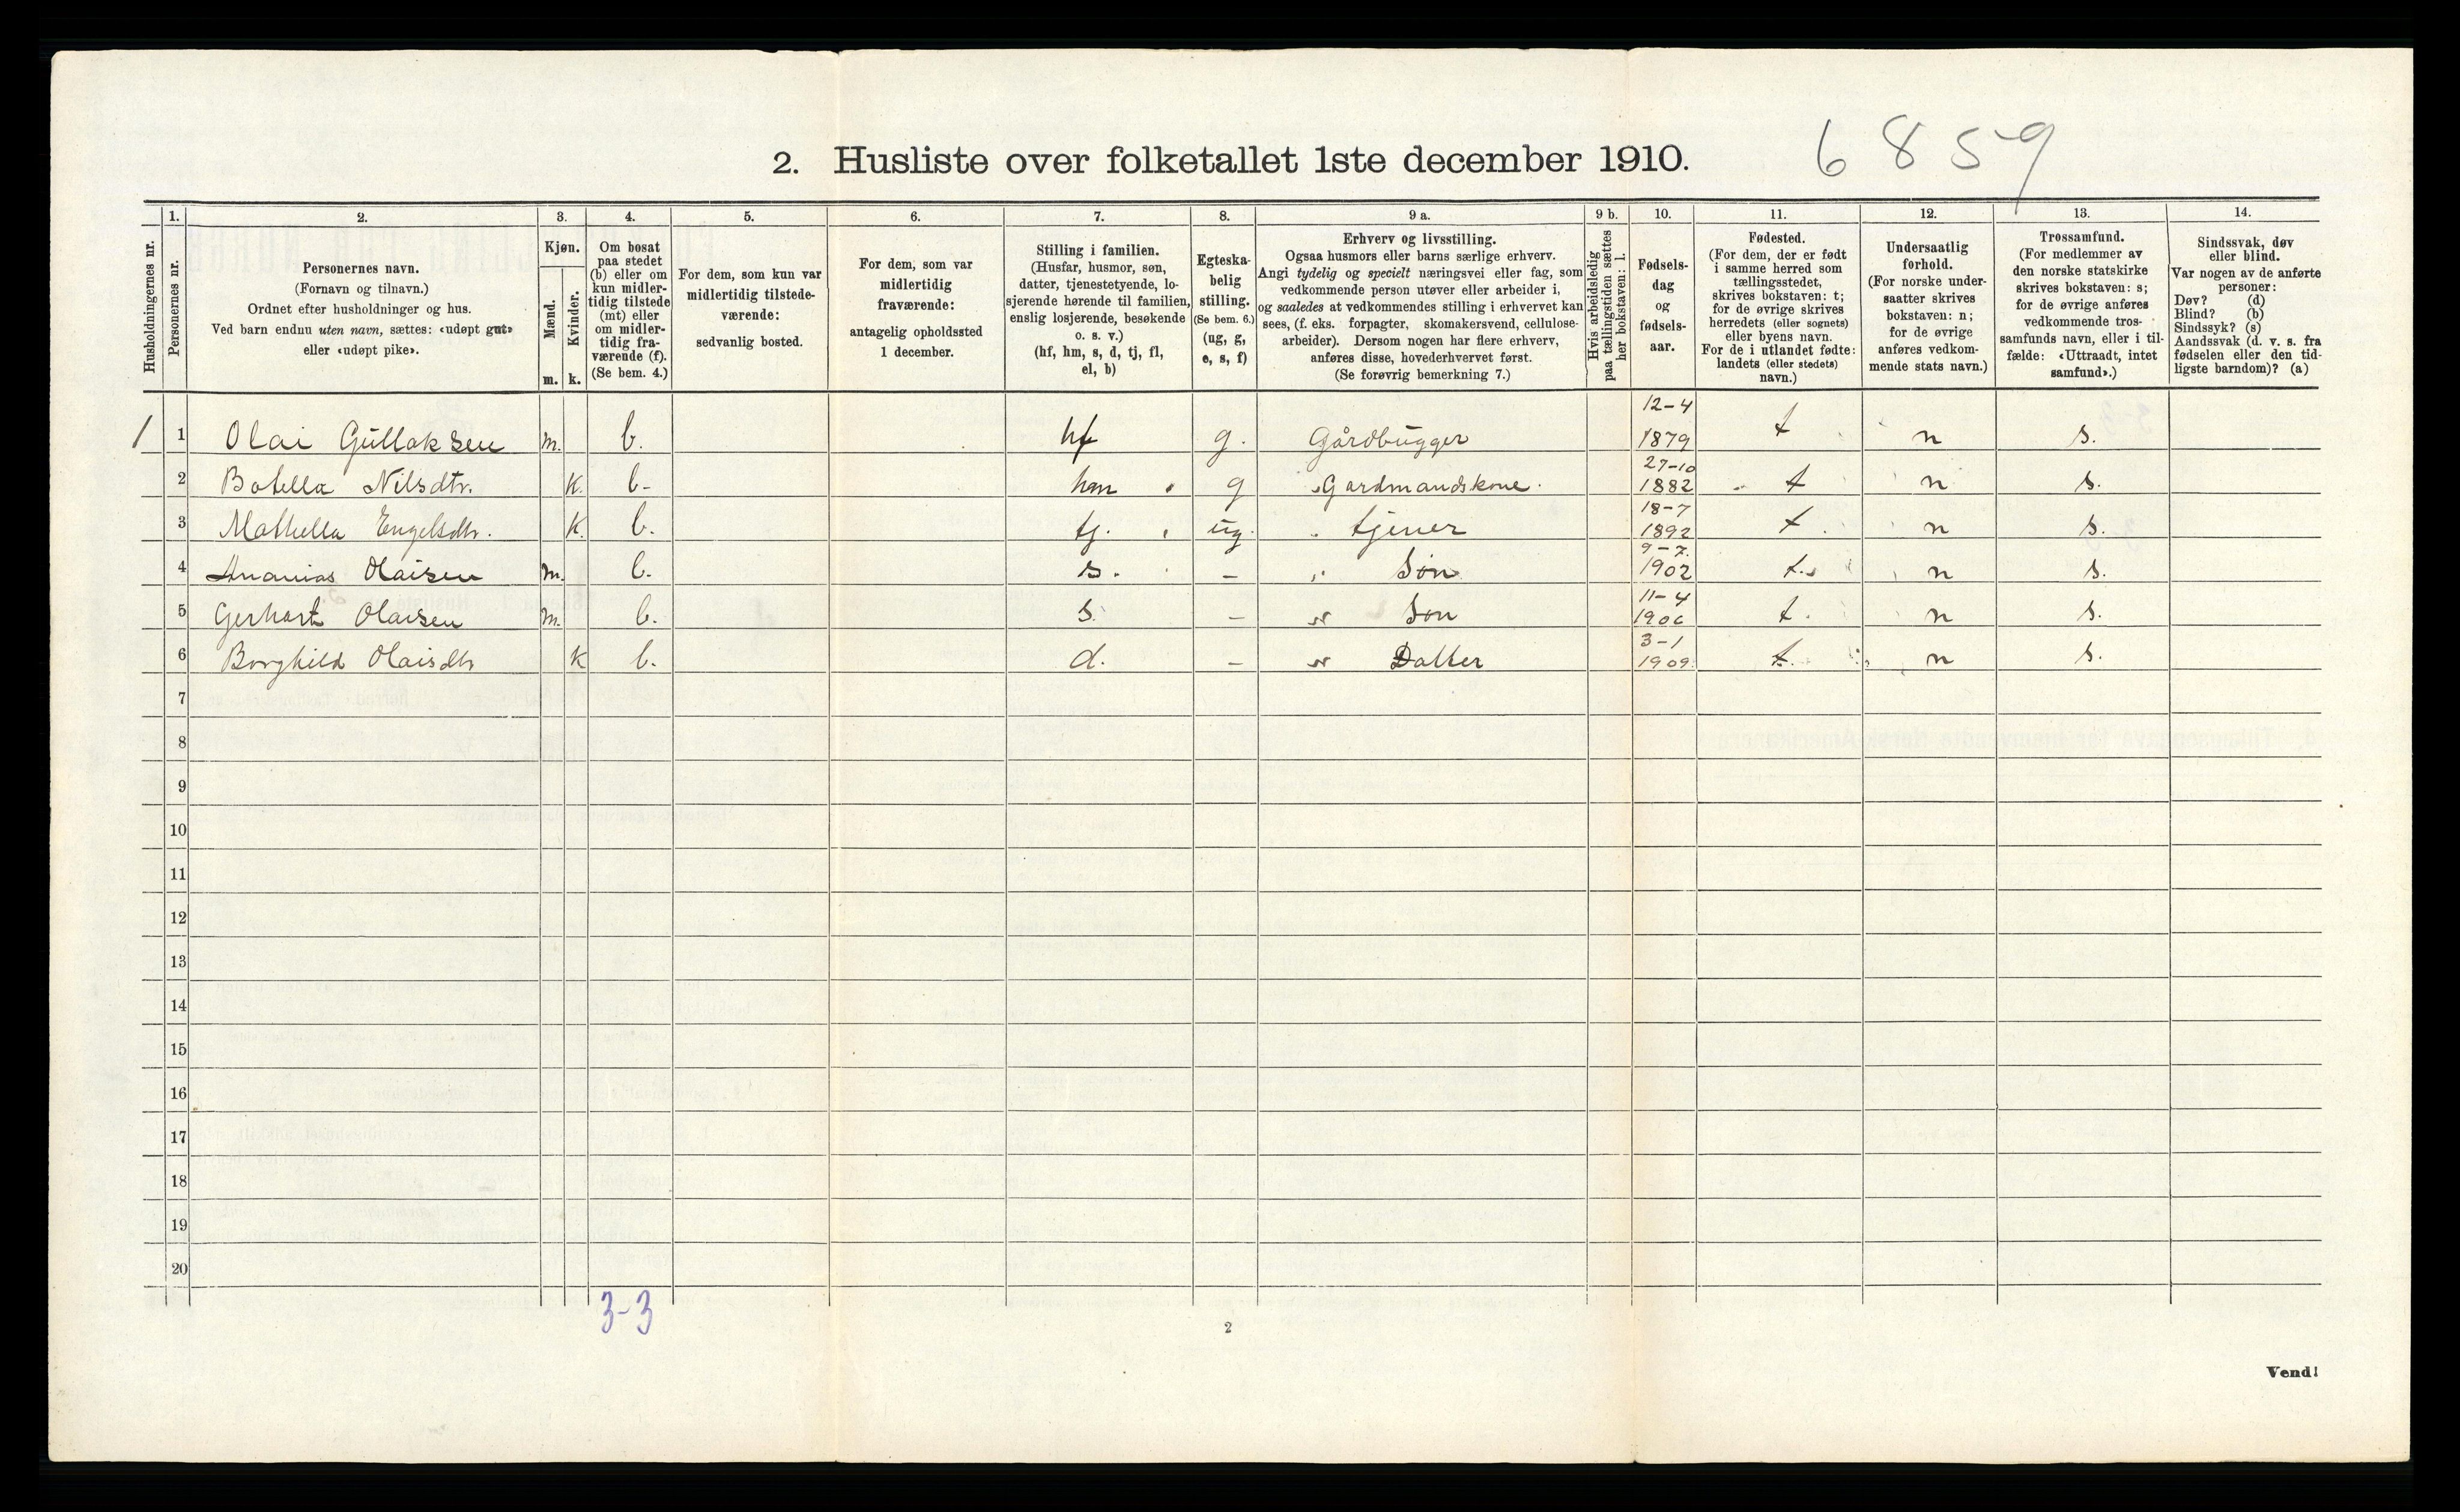 6859
2. Husliste over folketallet 1ste december 1910.
Husholdningernes nr.
1.
Personernes nr.
2.
Personernes navn.
(Fornavn og tilnavn.)
Ordnet efter husholdninger og hus.
Ved barn endnu uten navn, sættes: «udøpt gut»
eller «udøpt pike».
3.
Kjøn.
Mænd.
m.
Kvinder.
k.
4.
Om bosat
paa stedet
(b) eller om
kun midler-
tidig tilstede
(mt) eller
om midler-
tidig fra-
værende (f).
(Se bem. 4.)
5.
For dem, som kun var
midlertidig tilstede-
værende:
sedvanlig bosted.
6.
For dem, som var
midlertidig
fraværende:
antagelig opholdssted
1 december.
7.
Stilling i familien.
(Husfar, husmor, søn,
datter, tjenestetyende, lo-
sjerende hørende til familien,
enslig losjerende, besøkende
o. s. v.)
(hf, hm, s, d, tj, fl,
el, b)
8.
Egteska-
belig
stilling.
(Se bem. 6.)
(ug, g,
e, s, f)
9 a.
Erhverv og livsstilling.
Ogsaa husmors eller barns særlige erhverv.
Angi tydelig og specielt næringsvei eller fag, som
vedkommende person utøver eller arbeider i,
og saaledes at vedkommendes stilling i erhvervet kan
sees, (f. eks. forpagter, skomakersvend, cellulose-
arbeider). Dersom nogen har flere erhverv,
anføres disse, hovederhvervet først.
(Se forøvrig bemerkning 7.)
9 b.
Hvis arbeidsledig
paa tællingstiden sættes
her bokstaven: l.
10.
Fødsels-
dag
og
fødsels-
aar.
11.
Fødested.
(For dem, der er født
i samme herred som
tællingsstedet,
skrives bokstaven: t;
for de øvrige skrives
herredets (eller sognets)
eller byens navn.
For de i utlandet fødte:
landets (eller stedets)
navn.)
12.
Undersaatlig
forhold.
(For norske under-
saatter skrives
bokstaven: n;
for de øvrige
anføres vedkom-
mende stats navn.)
13.
Trossamfund.
(For medlemmer av
den norske statskirke
skrives bokstaven: s;
for de øvrige anføres
vedkommende tros-
samfunds navn, eller i til-
fælde: «Uttraadt, intet
samfund».)
14.
Sindssvak, døv
eller blind.
Var nogen av de anførte
personer:
Døv? (d)
Blind? (b)
Sindssyk? (s)
Aandssvak (d. v. s. fra
fødselen eller den tid-
ligste barndom)? (a)
1 1 Olai Gullaksen m. b. hf g. Gårdbrugger 12-4 1879 t n s.
2 Botella Nilsdtr. K. b- hm g Gardmandskone. 27-10 1882 t n s.
3 Mathella Engelsdtr. K. b. tj. ug. tjener 18-7 1892 t n s.
4 Ananias Olaisen m. b. s. - Søn 9-7. 1902 t. n s.
5 Gerhart Olaisen m. b. s. - " Søn 11-4 1906 t. n s.
6 Borghild Olaisdtr K b. d. - " Datter 3-1 1909. t. n s.
7
8
9
10
11
12
13
14
15
16
17
18
19
20
3-3
2
Vend!